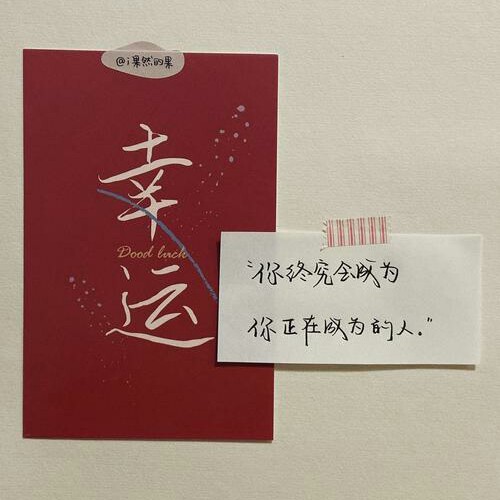 @i果然的果
幸运
Dood luck
“你终究会成为
你正在成为的人.”